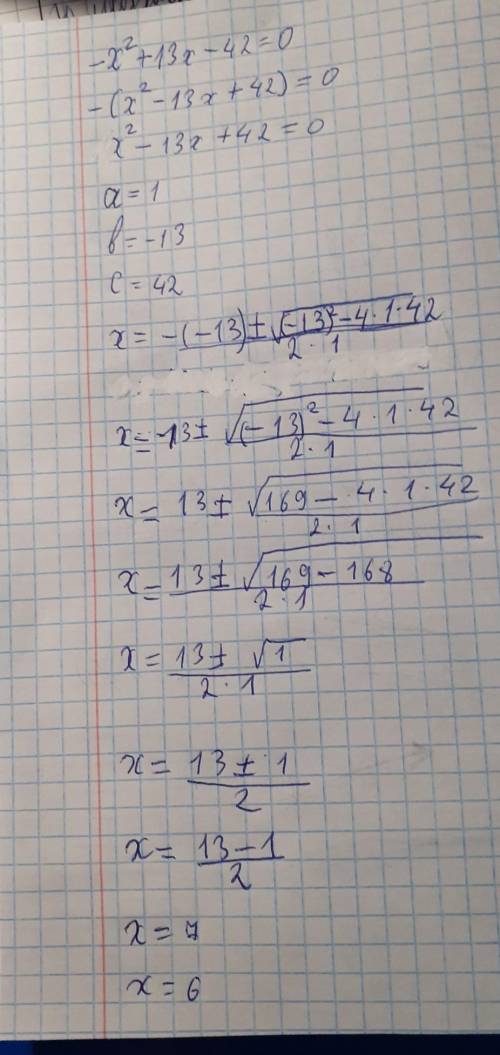 -x²+13x-42=0
-(x²-13x+42)=0
x²-13x+42=0
a=1
b=-13
c=42
x= -(-13)±√(-13)²-4·1·42
2·1
x= -13± √(-13)²-4·1·42
2·1
x= 13± √169-4·1·42
2·1
x= 13± √169-168
2·1
x= 13± √1
2·1
x= 13±1
2
x= 13-1
2
x=7
x=6